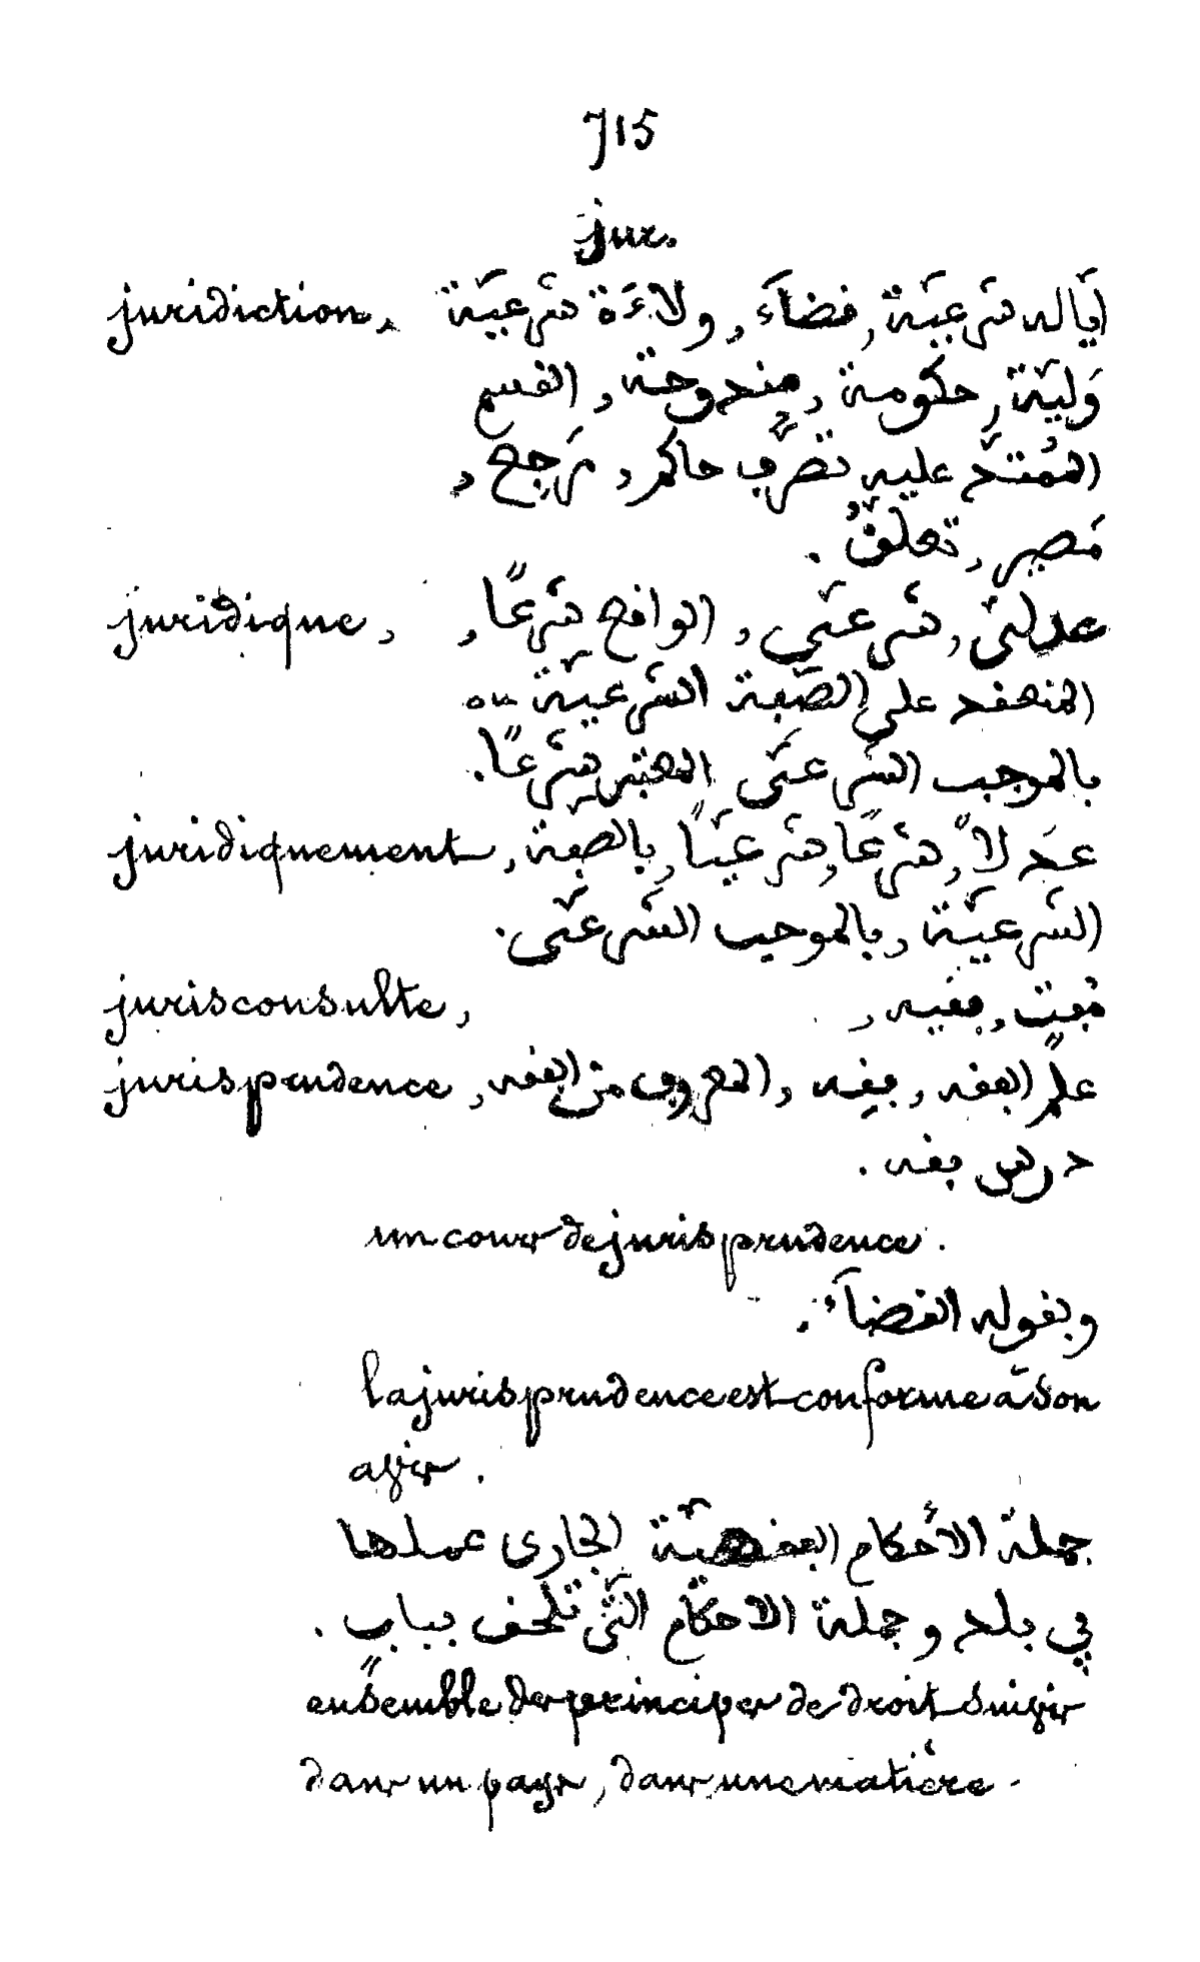 715
jur.
juridiction, اَيَّاله شَرعِيَّة, قضآء, ولاءَة شَرعِيَّة
وَليَّة, حكومة, مندوحة, القسم
المُمتدّ عليه تصرُّف حاكم, مَرجِع,
مَصير, تعلّقٌ.
juridique, عدلىّ, شَرعىّ, الواقع شرعًا,
المنعقد على الصّفة الشرعيّة ou
بالموجب الشَرعىّ المعتبر شَرعًا.
juridiquement, عَدلاً, شَرعًا, شَرعيّاً, بالصفة,
الشَرعيّة, بالموجب الشَرعىّ.
jurisconsulte, مُفتٍ, فقيه,
jurisprudence, علمُ الفقه, فِقه, المعروف من الفقه,
درس فقه.
un cours de jurisprudence.
وبقوله القضآء.
la jurisprudence est conforme à son
avis.
جملة الأحكام الفقهيّة الجارى عملها
في بلد وجملة الاحكام الّتى تلحق بباب.
ensemble des principes de droit suivis
dans un pays, dans une matière.